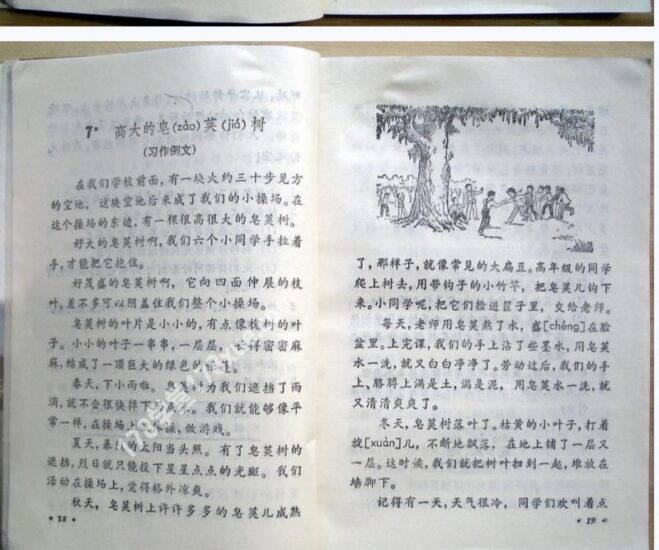 7* 高大的皂(zào)荚(jiá)树
(习作例文)
在我们学校前面，有一块大约三十步见方
的空地，这块空地后来成了我们的小操场。在
这个操场的东边，有一棵很高很大的皂荚树。
好大的皂荚树啊，我们六个小同学手拉着
手，才能把它抱住。
好茂盛的皂荚树啊，它向四面伸展的枝
叶，差不多可以阴盖住我们整个小操场。
皂荚树的叶片是小小的，有点像槐树的叶
子。小小的叶子一串串，一层层，长得密密麻
麻，结成了一顶巨大的绿色的
春天，下小雨啦。皂荚树为我们遮挡了雨
滴，就不会很快掉下
我们就能够像平
常一样，在操场上
做游戏。
夏天，
太阳当头照。有了皂荚树的
遮挡，烈日就只能投下星星点点的光斑。我们
活动在操场上，觉得格外凉爽。
秋天，皂荚树上许许多多的皂荚儿成熟
18
了，那样子，就像常见的大扁豆。高年级的同学
爬上树去，用带钩子的小竹竿，把皂荚儿钩下
来。小同学呢，把它们捡进筐子里，交给老师。
每天，老师用皂荚熬了水，盛[chéng]在脸
盆里。上完课，我们的手上沾了些墨水，用皂荚
水一洗，就又白白净净了。劳动过后，我们的手
上，胳膊上满是土，满是泥，用皂荚水一洗，就
又清清爽爽了。
冬天，皂荚树落叶了。枯黄的小叶子，打着
旋[xuàn]儿，不断地飘落，在地上铺了一层又
一层。这时候，我们就把树叶扫到一起，堆放在
墙脚下。
记得有一天，天气很冷，同学们欢叫着点
19